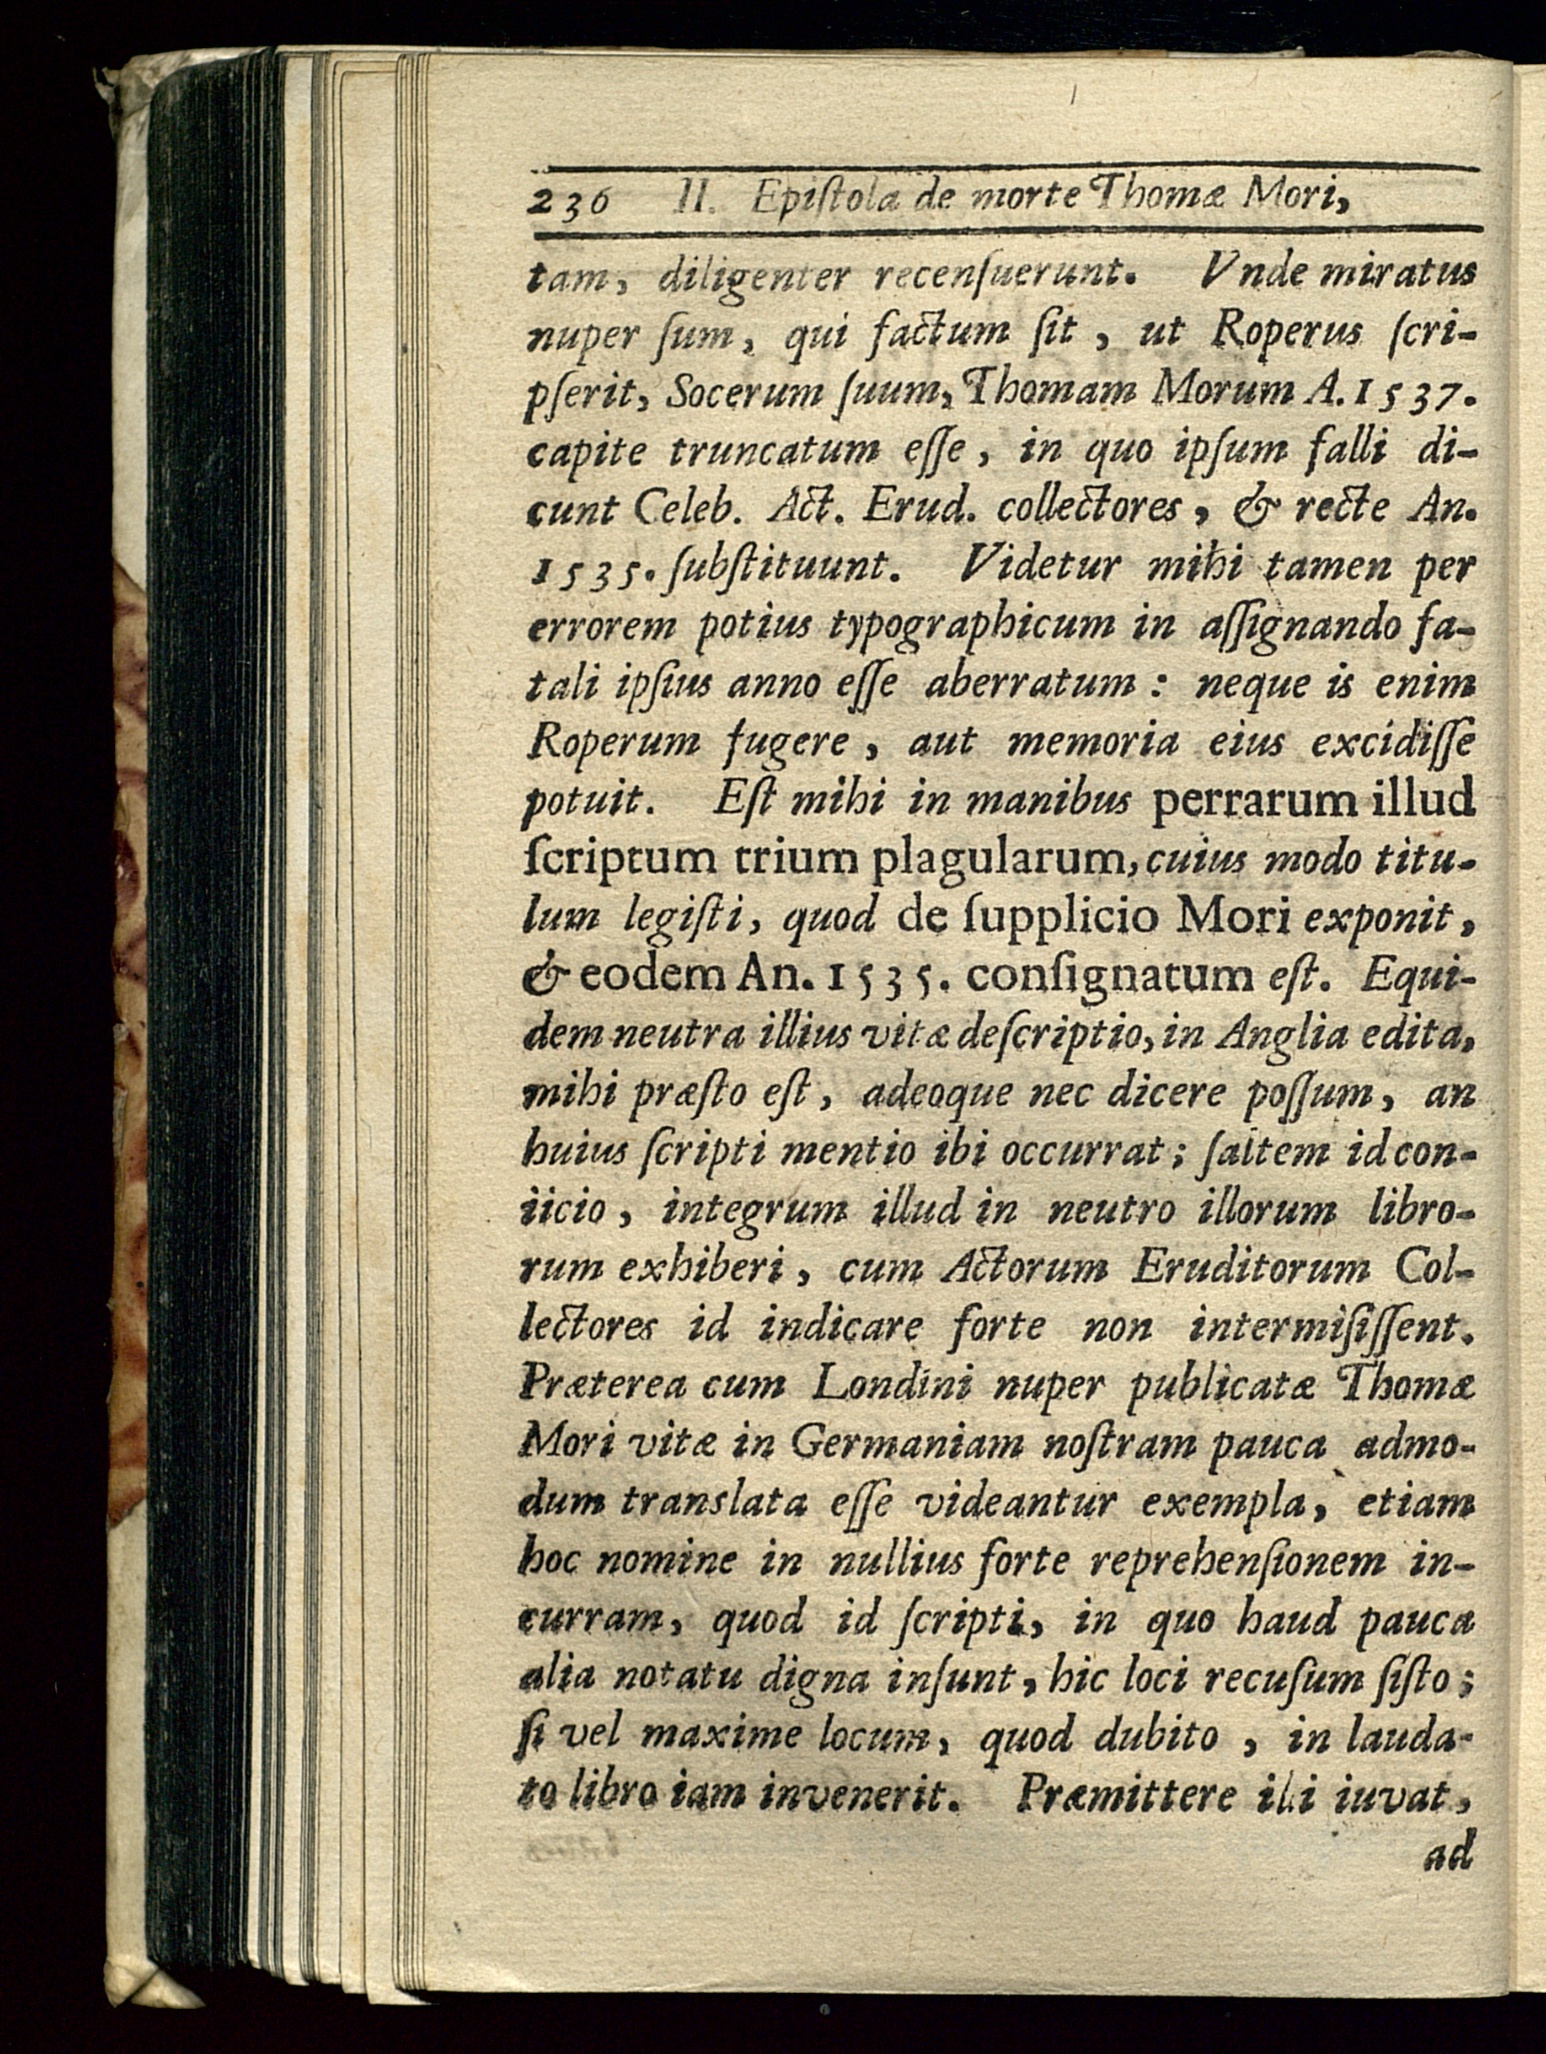 236 II. Epiſtola de morte Thomæ Mori,
tam, diligenter recenſuerunt. Vnde miratus
nuper ſum, qui factum ſit, ut Roperus ſcri-
pſerit, Socerum ſuum, Thomam Morum A. 1537.
capite truncatum eſſe, in quo ipſum falli di-
cunt Celeb. Act. Erud. collectores, & recte An.
1535. ſubſtituunt. Videtur mihi tamen per
errorem potius typographicum in aſſignando fa-
tali ipſius anno eſſe aberratum: neque is enim
Roperum fugere, aut memoria eius excidiſſe
potuit. Eſt mihi in manibus perrarum illud
ſcriptum trium plagularum, cuius modo titu-
lum legiſti, quod de ſupplicio Mori exponit,
& eodem An. 1535. conſignatum eſt. Equi-
dem neutra illius vitæ deſcriptio, in Anglia edita,
mihi præſto eſt, adeoque nec dicere poſſum, an
huius ſcripti mentio ibi occurrat; ſaltem id con-
iicio, integrum illud in neutro illorum libro-
rum exhiberi, cum Actorum Eruditorum Col-
lectores id indicare forte non intermiſiſſent.
Præterea cum Londini nuper publicatæ Thomæ
Mori vitæ in Germaniam noſtram pauca admo-
dum translata eſſe videantur exempla, etiam
hoc nomine in nullius forte reprehenſionem in-
curram, quod id ſcripti, in quo haud pauca
alia notatu digna inſunt, hic loci recuſum ſiſto;
ſi vel maxime locum, quod dubito, in lauda-
to libro iam invenerit. Præmittere illi iuvat,
ad